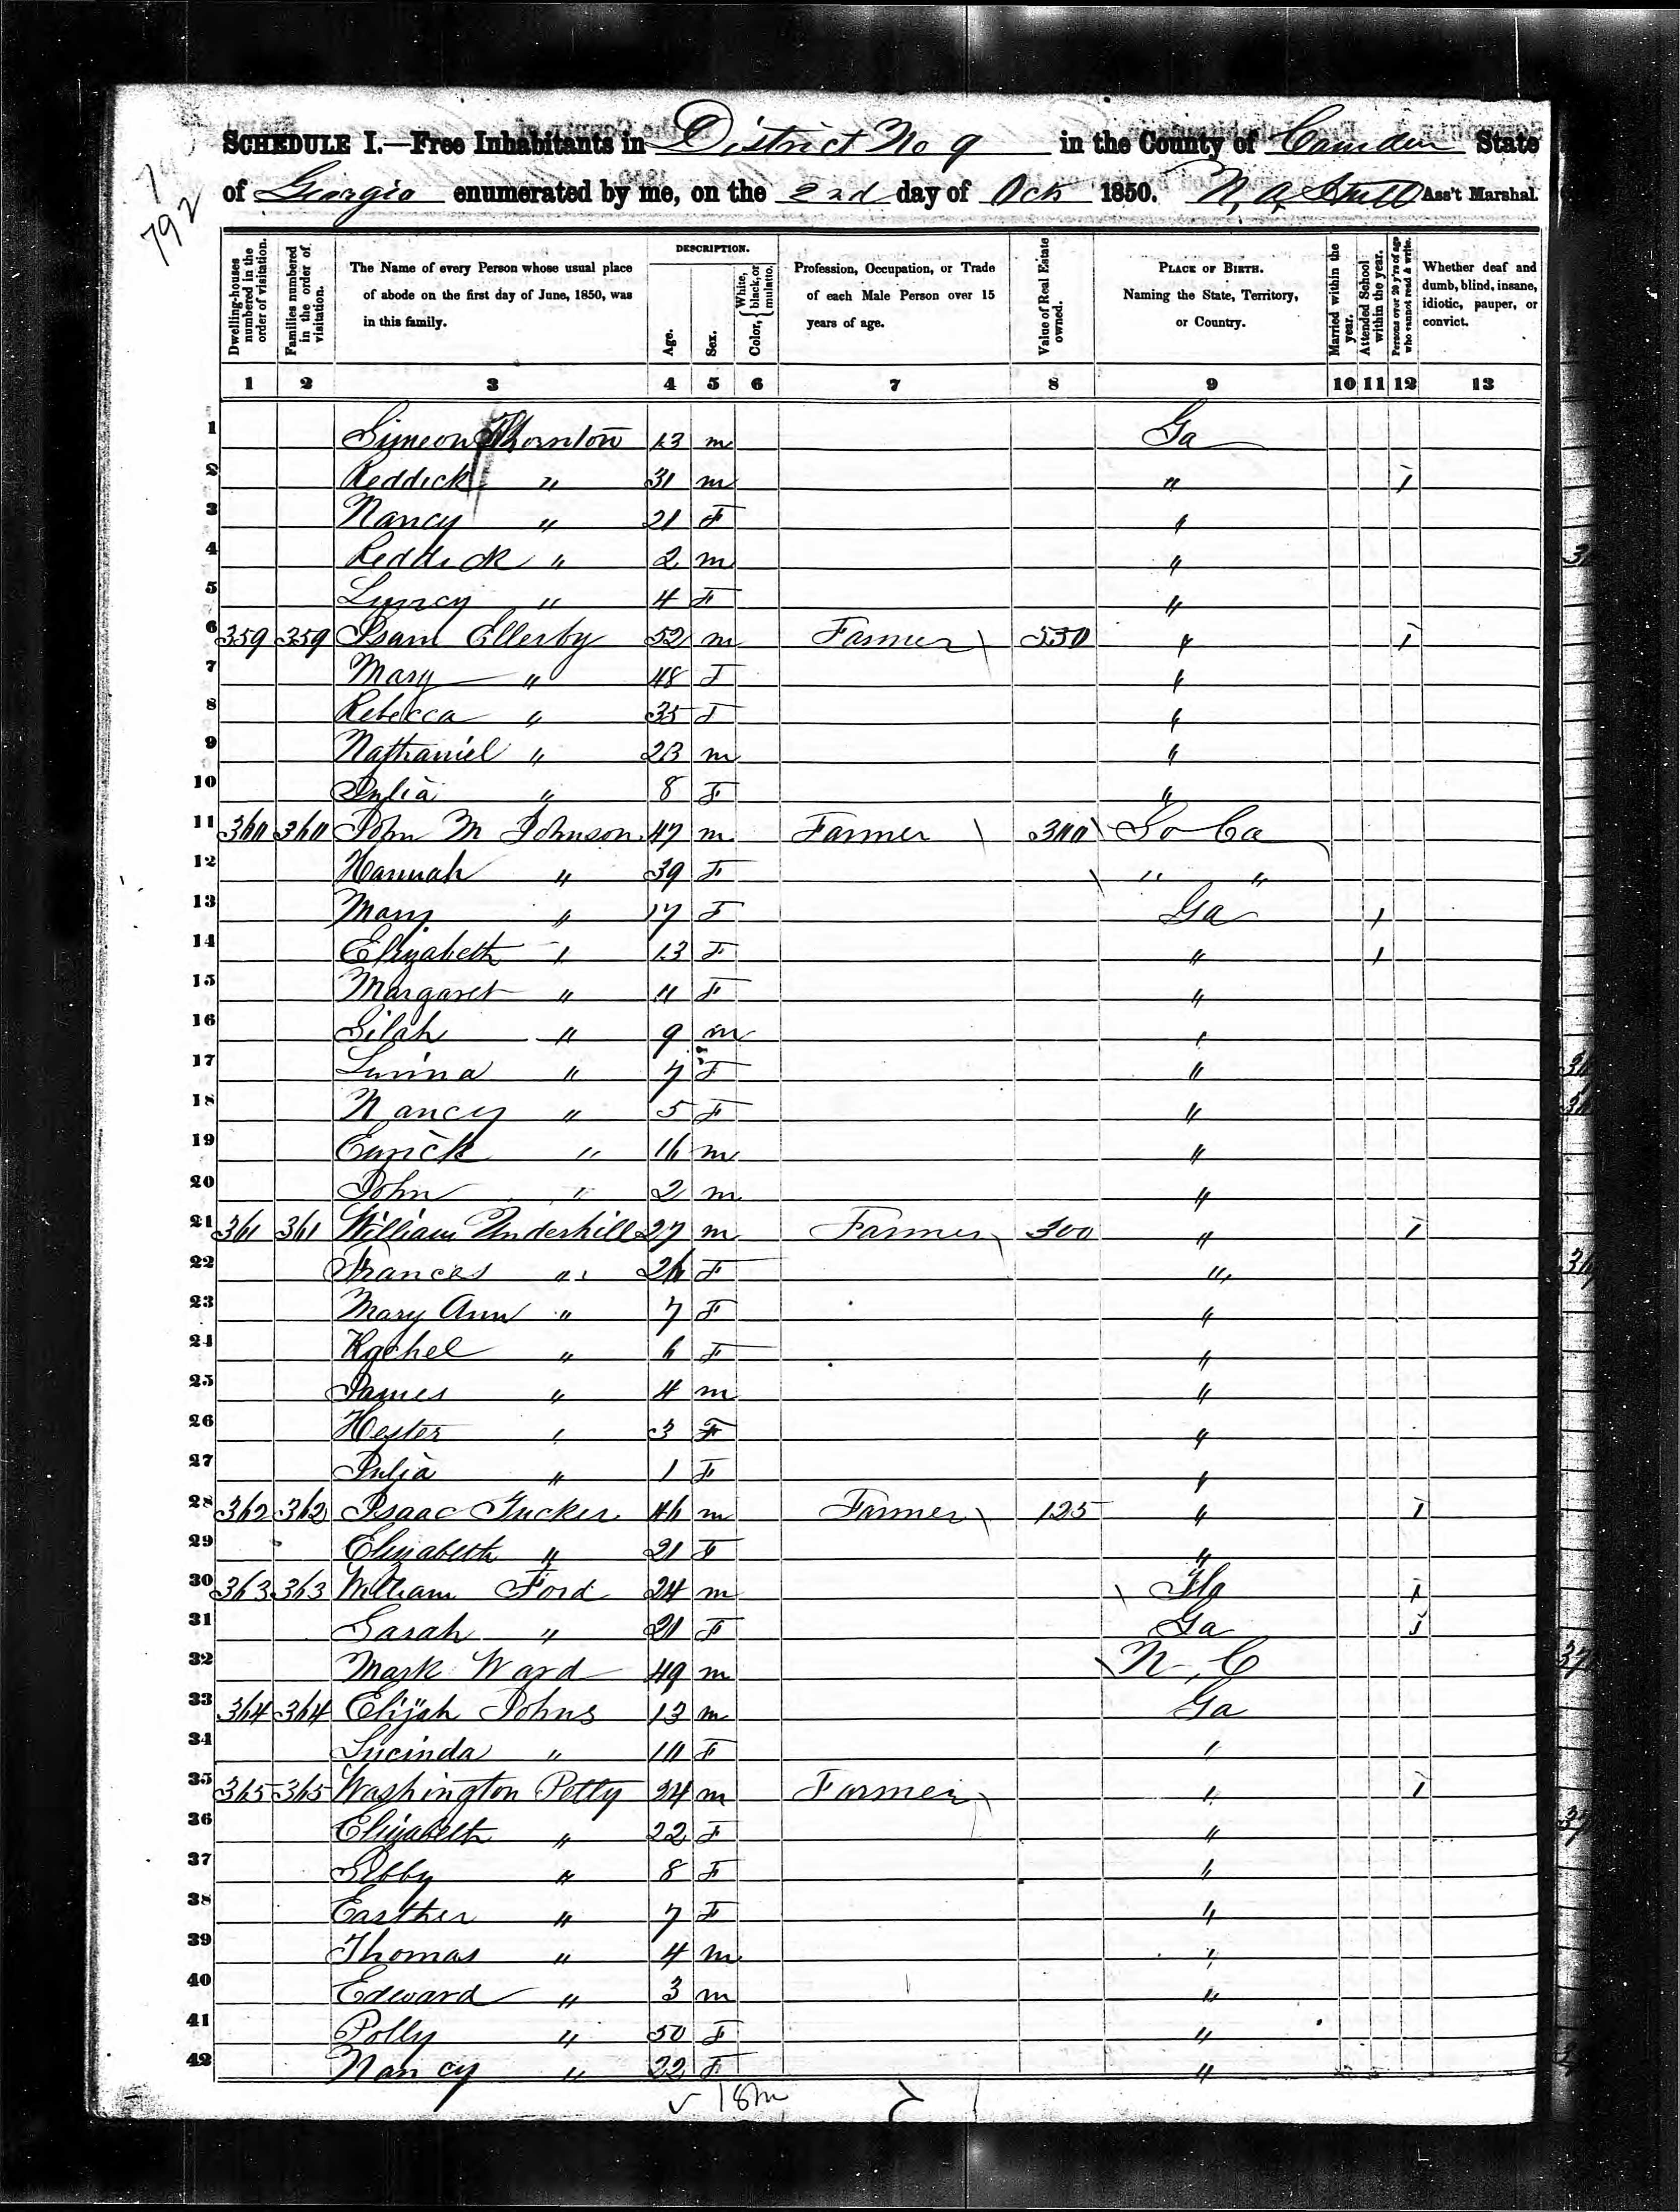 792
SCHEDULE I.—Free Inhabitants in District No 9 in the County of Camden State
of Georgia enumerated by me, on the 2nd day of Oct 1850. N. A. Ass't Marshal.
Dwelling-houses numbered in the order of visitation.
Families numbered in the order of visitation.
The Name of every Person whose usual place of abode on the first day of June, 1850, was in this family.
DESCRIPTION.
Age.
Sex.
Color, { White, black, or mulatto.
Profession, Occupation, or Trade of each Male Person over 15 years of age.
Value of Real Estate owned.
PLACE OF BIRTH. Naming the State, Territory, or Country.
Married within the year.
Attended School within the year.
Persons over 20 y'rs of age who cannot read & write.
Whether deaf and dumb, blind, insane, idiotic, pauper, or convict.
1 2 3 4 5 6 7 8 9 10 11 12 13
1 Simeon Thornton 13 m Ga
2 Reddick " 31 m " 1
3 Nancy " 21 F "
4 Reddick " 2 m "
5 " 4 F "
6 359 359 Isam Ellerby 52 m Farmer 550 " 1
7 Mary " 48 F "
8 Rebecca " 35 F "
9 Nathaniel " 23 m "
10 Julia " 8 F "
11 360 360 John M Johnson 47 m Farmer 300 So Ca
12 Hannah " 39 F " "
13 Mary " 17 F Ga 1
14 Elizabeth " 13 F " 1
15 Margaret " 11 F "
16 Silah " 9 m "
17 " 7 F "
18 Nancy " 5 F "
19 " 16 m "
20 John " 2 m "
21 361 361 William Underhill 27 m Farmer 300 " 1
22 Frances " 26 F "
23 Mary Ann " 7 F "
24 Rachel " 6 F "
25 James " 4 m "
26 Hester " 3 F "
27 Julia " 1 F "
28 362 362 Isaac Tucker 46 m Farmer 125 " 1
29 Elizabeth " 21 F "
30 363 363 William Ford 24 m Fla 1
31 Sarah " 21 F Ga 1
32 Mark Ward 49 m N. C
33 364 364 Elijah Johns 13 m Ga
34 Lucinda " 10 F "
35 365 365 Washington Petty 24 m Farmer " 1
36 Elizabeth " 22 F "
37 " 8 F "
38 Easther " 7 F "
39 Thomas " 4 m "
40 Edward " 3 m "
41 Polly " 50 F "
42 Nancy " 22 F "
18m